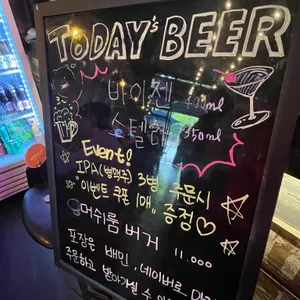 TODAY'S BEER
바이젠 400ml
스텔라 350ml
Event!
IPA(병맥주) 3병 주문시
"이벤트 쿠폰 1매" 증정♡
머쉬룸 버거 11.000
포장은 배민, 네이버로
주문하고 받아가실 수